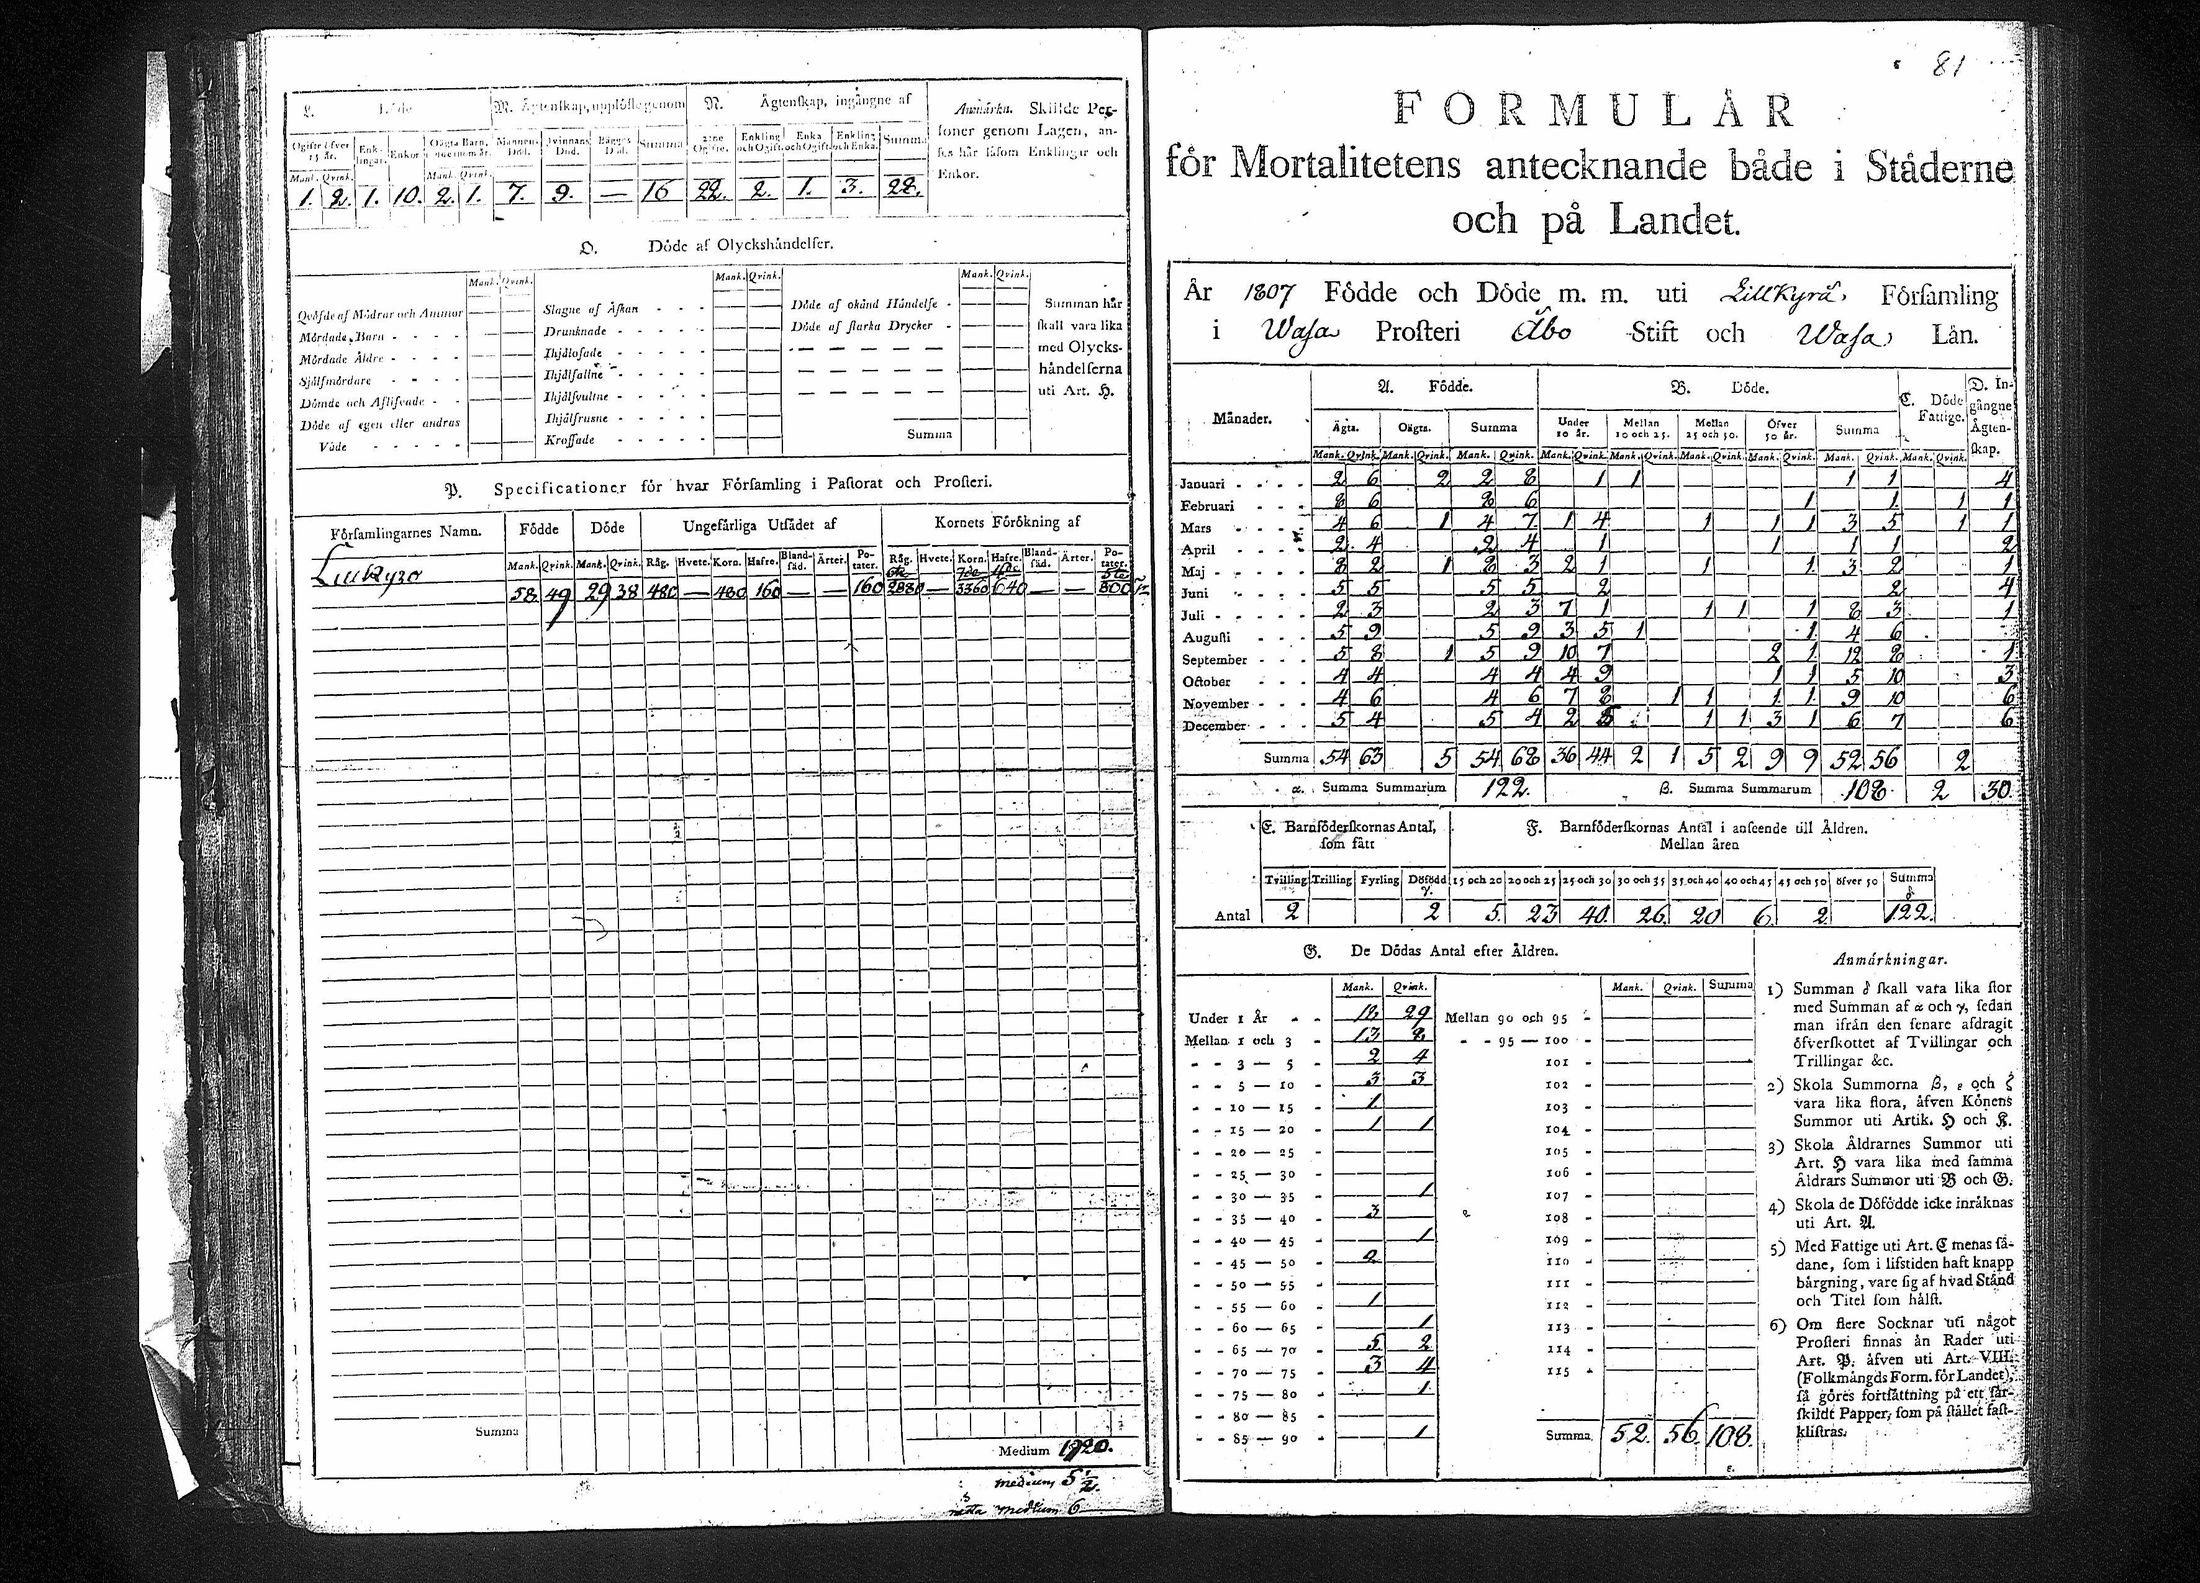 L. Döde
M. Ägtenskap, upplöste genom
N. Ägtenskap, ingångne af
Anmärkn. Skillde Personer genom Lagen, an-
ses här såsom Enklingar och
Enkor.
Ogifte öfver 15 år. Enk-lingar. Enkor Oägta Barn, Mannens Död. Qvinnans Död. Bägges Död. Summa Ogifte. Enkling och Ogift. Enka och Ogift. Enkling och Enka. Summa
Mank. Qvink. Mank. Qvink.
1. 2. 1. 10. 2. 1. 7. 9. — 16 22. 2. 1. 3. 28.
O. Döde af Olyckshändelser.
Mank. Qvink. Mank. Qvink. Mank. Qvink.
Qväfde af Mödrar och Ammor
Mördade Barn - - - -
Mördade Äldre - - - -
Självmördare - - - -
Dömde och Aflifvade - -
Döde af egen eller andras
Våde - - - - -
Slagne af Åskan - - -
Drunknade - - - -
Ihjälsofade - - - -
Ihjälfallne - - - - -
Ihjälsvultne - - - - -
Ihjälfrusne - - - - -
Krossade - - - - -
Döde af okänd Händelse -
Döde af starka Drycker -
Summa
Summan här
skall vara lika
med Olycks-
händelserna
uti Art. H.
P. Specificationer för hvar Församling i Pastorat och Prosteri.
Församlingarnes Namn. Födde Döde Ungefärliga Utsädet af Kornets Förökning af
Mank. Qvink. Mank. Qvink. Råg. Hvete. Korn. Hafre. Bland-säd. Ärter. Po-tater. Råg. Hvete. Korn. Hafre. Bland-säd. Ärter. Po-tater.
6te 7de 4de 5te
Lillkyro 58 49 29 38 480 — 480 160 — — 160 2880 — 3360 640 — — 800
Summa
Medium 1920.
medium 5 1/2.
rätta medium 6
81
FORMULÄR
för Mortalitetens antecknande både i Städerne
och på Landet.
År 1807 Födde och Döde m. m. uti Lillkyrå Församling
i Wasa Prosteri Åbo Stift och Wasa Län.
Månader. A. Födde. B. Döde. C. Döde Fattige. D. In-gångne Ägten-skap.
Ägta. Oägta. Summa Under 10 år. Mellan 10 och 25. Mellan 25 och 50. Öfver 50 år. Summa
Mank. Qvink. Mank. Qvink. Mank. Qvink. Mank. Qvink. Mank. Qvink. Mank. Qvink. Mank. Qvink. Mank. Qvink. Mank. Qvink.
Januari - - - - 2 6 2 2 8 1 1 1 1 4
Februari - - - 8 6 8 6 1 1 1 1
Mars - - - - 4 6 1 4 7 1 4 1 1 1 3 5 1 1
April - - - - 2 4 2 4 1 1 1 1 2
Maj - - - - - 8 2 1 8 3 2 1 1 1 3 2 1
Juni - - - - 5 5 5 5 2 2 4
Juli - - - - - 2 3 2 3 7 1 1 1 1 8 3 1
Augusti - - - 5 9 5 9 3 5 1 1 4 6
September - - - 5 8 1 5 9 10 7 2 1 12 8 1
October - - - 4 4 4 4 4 9 1 1 5 10 3
November - - - 4 6 4 6 7 8 1 1 1 1 9 10 6
December - - - 5 4 5 4 2 5 1 1 3 1 6 7 6
Summa 54 63 5 54 68 36 44 2 1 5 2 9 9 52 56 2
α. Summa Summarum 122. β. Summa Summarum 108. 2 30.
E. Barnföderskornas Antal,
som fått
F. Barnföderskornas Antal i anseende till Åldren.
Mellan åren
Tvilling Trilling Fyrling Dödfödd γ. 15 och 20 20 och 25 25 och 30 30 och 35 35 och 40 40 och 45 45 och 50 öfver 50 Summa δ
Antal 2 2 5. 23 40. 26. 20 6. 2. 122.
G. De Dödas Antal efter Åldren.
Mank. Qvink. Mank. Qvink. Summa
Under 1 År - - 18 29 Mellan 90 och 95 -
Mellan 1 och 3 - 13 8 - - 95 — 100 -
- - 3 — 5 - 2 4 101 -
- - 5 — 10 - 3 3 102 -
- - 10 — 15 - 1 103 -
- - 15 — 20 - 1 1 104 -
- - 20 — 25 - 105 -
- - 25 — 30 - 106 -
- - 30 — 35 - 1 107 -
- - 35 — 40 - 3 108 -
- - 40 — 45 - 1 109 -
- - 45 — 50 - 2 110 -
- - 50 — 55 - 111 -
- - 55 — 60 - 1 112 -
- - 60 — 65 - 1 113 -
- - 65 — 70 - 5 2 114 -
- - 70 — 75 - 3 4 115 -
- - 75 — 80 - 1
- - 80 — 85 -
- - 85 — 90 - 1 Summa 52. 56. 108.
ε.
Anmärkningar.
1) Summan δ skall vara lika stor
med Summan af α och γ, sedan
man ifrån den senare afdragit
öfverskottet af Tvillingar och
Trillingar &c.
2) Skola Summorna β, ε och ζ
vara lika stora, äfven Könens
Summor uti Artik. H och K.
3) Skola Åldrarnes Summor uti
Art. H vara lika med samma
Åldrars Summor uti B och G.
4) Skola de Döfödde icke inräknas
uti Art. A.
5) Med Fattige uti Art. C menas så-
dane, som i lifstiden haft knapp
bärgning, vare sig af hvad Stånd
och Titel som hälst.
6) Om flere Socknar uti något
Prosteri finnas än Rader uti
Art. P. äfven uti Art. VIII.
(Folkmängds Form. för Landet),
så göres fortsättning på ett sär-
skildt Papper, som på stället fast-
klistras.